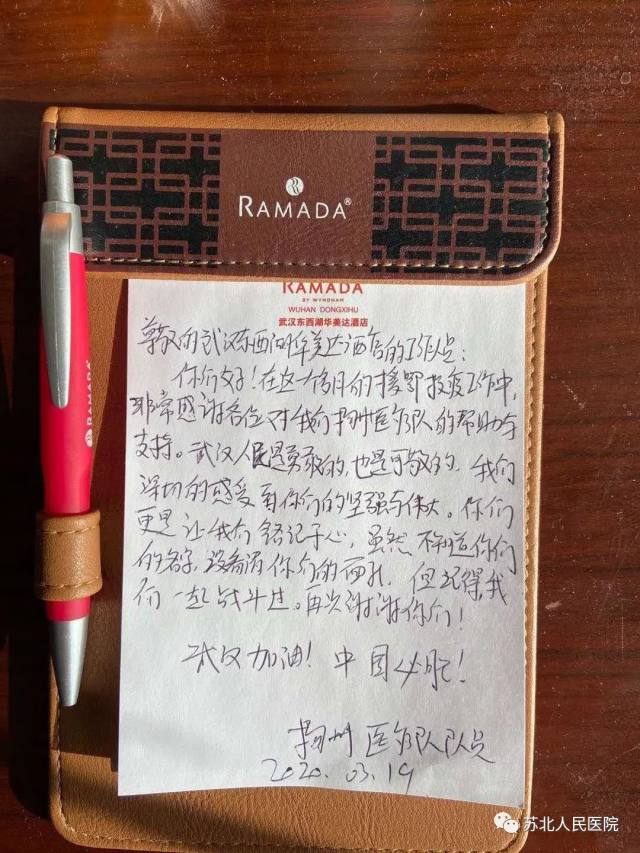 RAMADA®
RAMADA
BY WYNDHAM
WUHAN DONGXIHU
武汉东西湖华美达酒店
尊敬的武汉东西湖华美达酒店的工作人员:
你们好!在这一个多月的援鄂抗疫工作中,
非常感谢各位对我们扬州医疗队的帮助与
支持。武汉人民是勇敢的,也是可敬的,我们
深切的感受到你们的坚强与伟大。你们
更是让我们铭记于心,虽然不知道你们
的名字,没看清你们的面孔,但记得我
们一起战斗过。再次谢谢你们!
武汉加油!中国必胜!
扬州医疗队队员
2020.03.19
RAMADA
苏北人民医院